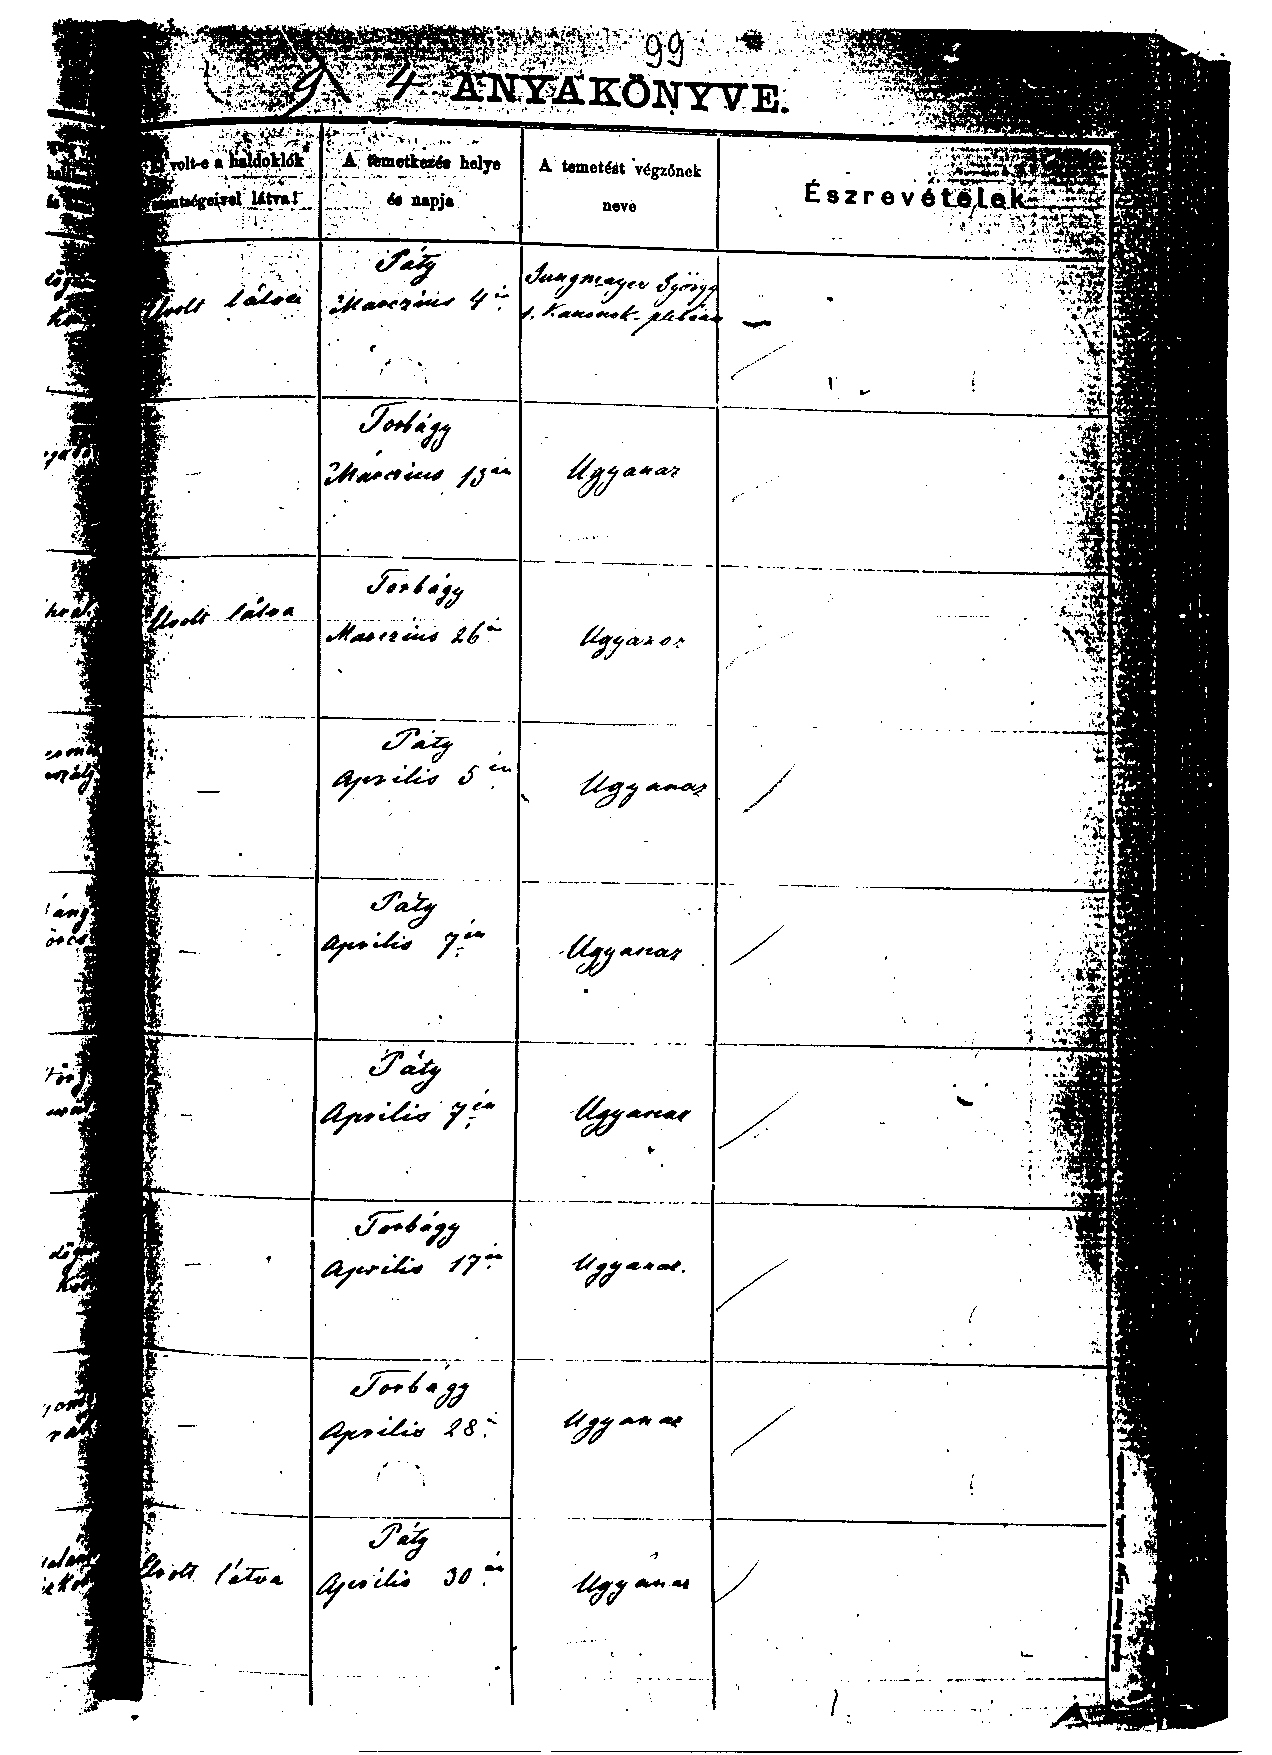 99
4 ANYAKÖNYVE.
volt-e a haldoklók
szentségeivel látva?
A temetkezés helye
és napja
A temetést végzőnek
neve
Észrevételek
Elvolt látva
Páty
Márczius 4én
Jungmayer György
t. Kanonok-plébános
Torbágy
Márczius 13án
Ugyanaz
—
Elvolt látva
Torbágy
Márczius 26án
Ugyanaz
Páty
Április 5én
Ugyanaz
—
Páty
Április 7én
Ugyanaz
—
Páty
Április 7én
Ugyanaz
—
Torbágy
Április 17én
Ugyanaz.
—
Torbágy
Április 28án
Ugyanaz
—
Elvolt látva
Páty
Április 30án
Ugyanaz